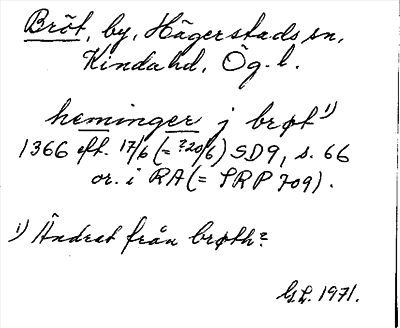 Bröt, by, Hägerstads sn,
Kinda hd, Ög. l.
heminger j brøt¹⁾
1366 eft. 17/6 (= ?20/6) SD 9, s. 66
or. i RA (= SRP 709).
¹⁾ Ändrat från brøth?
G.L. 1971.